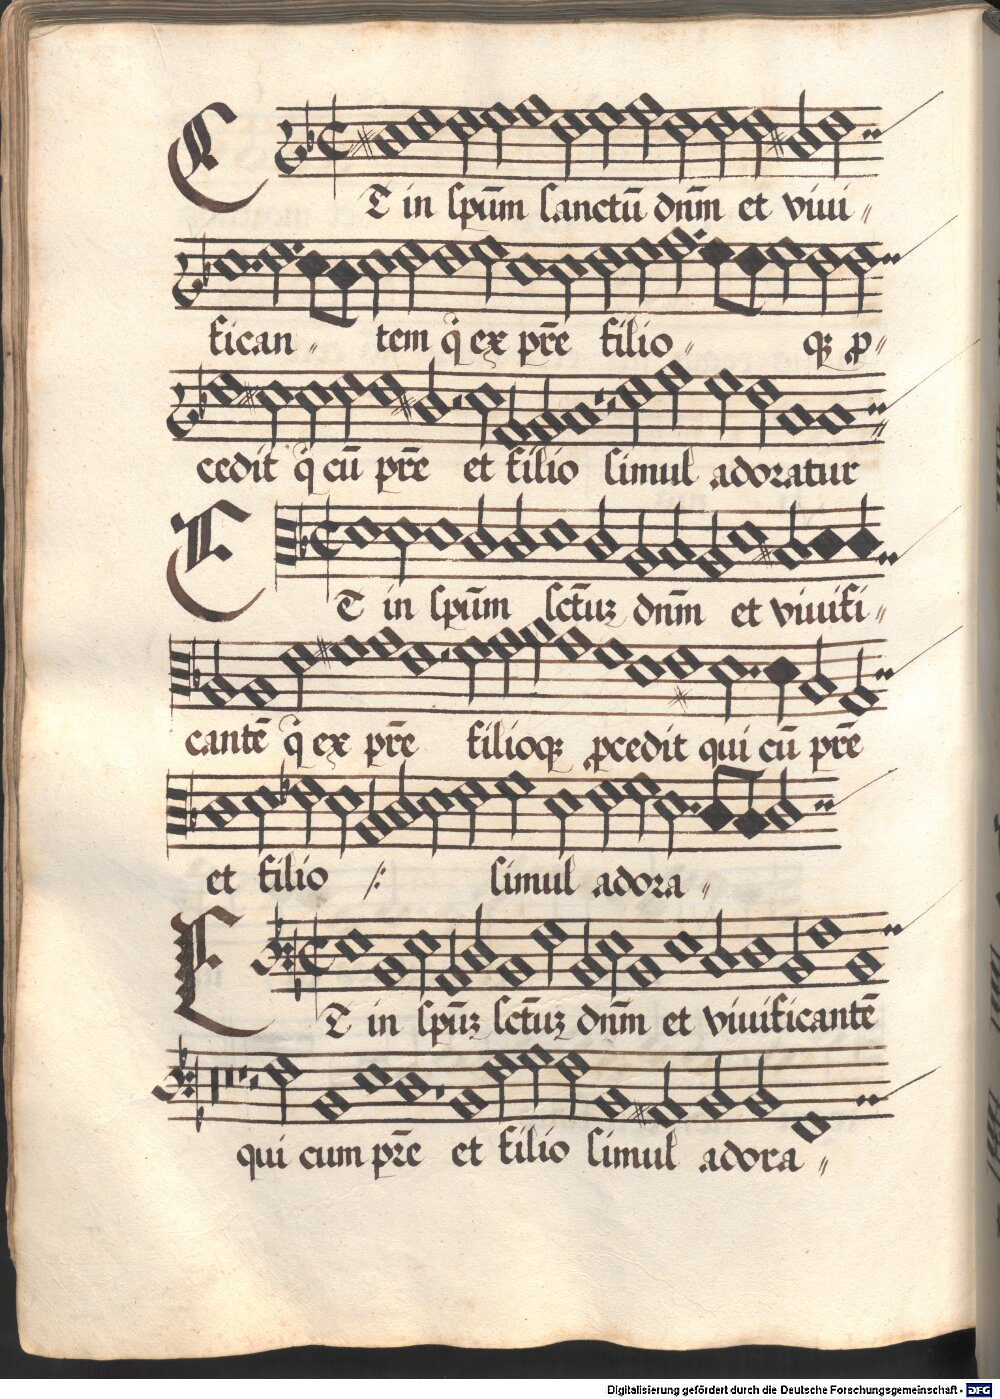 ET in spūm sanctū dnm̄ et viui〃
fican〃 tem q̇ ex pr̄e filio〃 qꝫ ꝓ〃
cedit q̇ cū pr̄e et filio simul adoratur
ET in spūm sct̄uꝫ dnm̄ et viuifi〃
cantē q̇ ex pr̄e filioqꝫ ꝓcedit qui cū pr̄e
et filio ⁄: simul adora〃
ET in spūꝫ sct̄uꝫ dnm̄ et viuificantē
qui cum pr̄e et filio simul adora〃
Digitalisierung gefördert durch die Deutsche Forschungsgemeinschaft - DFG